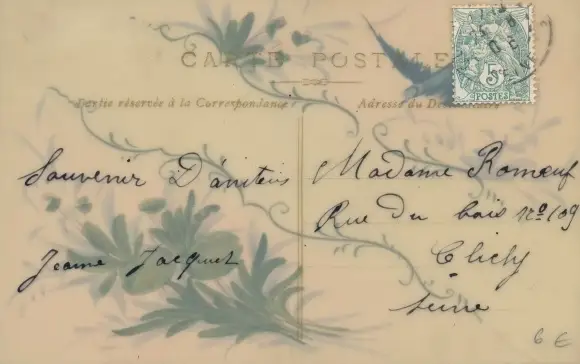 CARTE POSTALE
Partie réservée à la Correspondance
Adresse du
Souvenir D'amitiés
Jeanne Jacquet
Madame Romeuf
Rue Du bois nº 109
Clichy
Seine
5c
POSTES
6 €